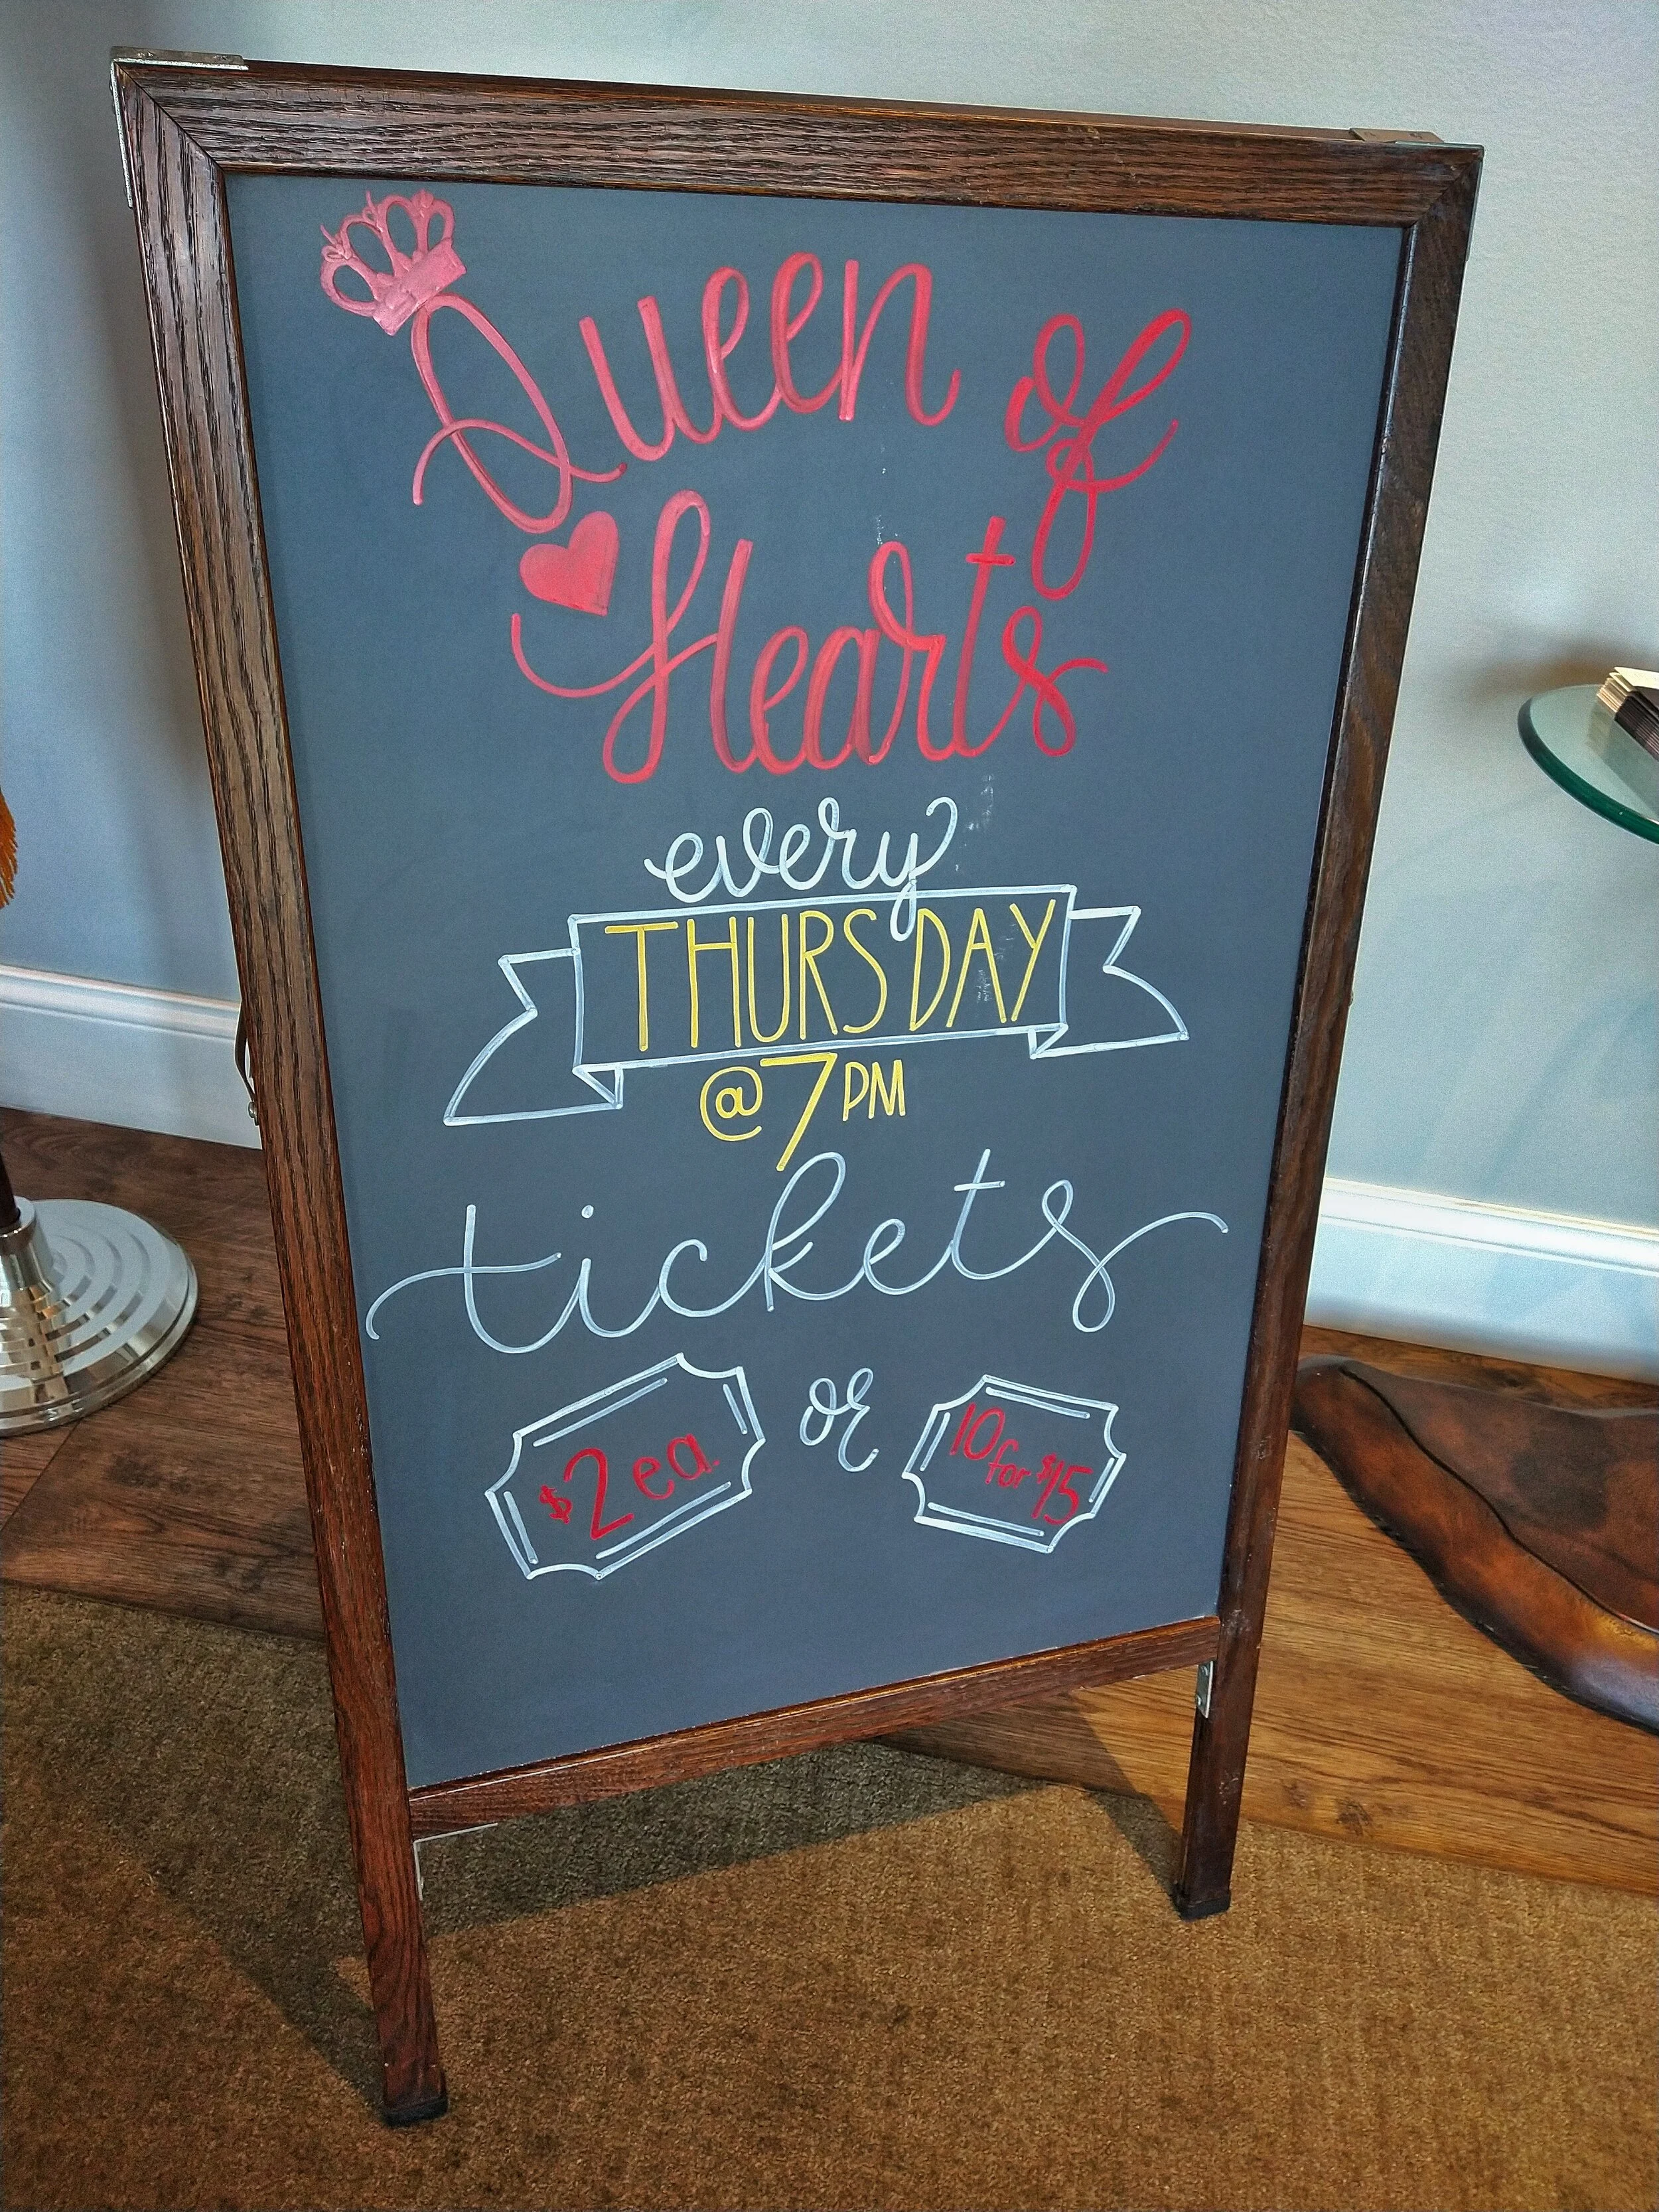 Queen of
Hearts
every
THURSDAY
@7PM
tickets
$2ea. or 10 for $15